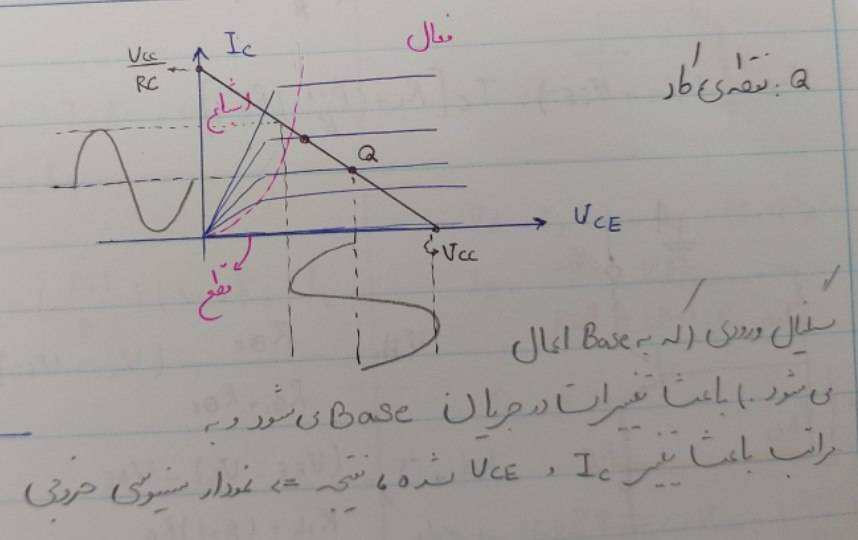 I_C
فعال
V_CC / R_C
اشباع
Q : نقطه‌ی کار
Q
V_CE
V_CC
قطع
سیگنال ورودی (که به Base اعمال
می‌شود.) باعث تغییرات در جریان Base می‌شود و به
مراتب باعث تغییر I_C و V_CE شده، نتیجه => نمودار سینوسی خروجی